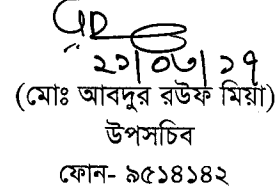 ২১|০৩|১৭
(মোঃ আবদুর রউফ মিয়া)
উপসচিব
ফোন- ৯৫১৪১৪২